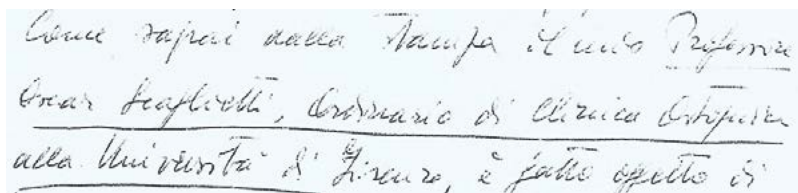 Come saprai dalla stampa il mio Professore
Oscar Scaglietti, Ordinario di Clinica Ortopedica
alla Università di Firenze, è fatto oggetto di